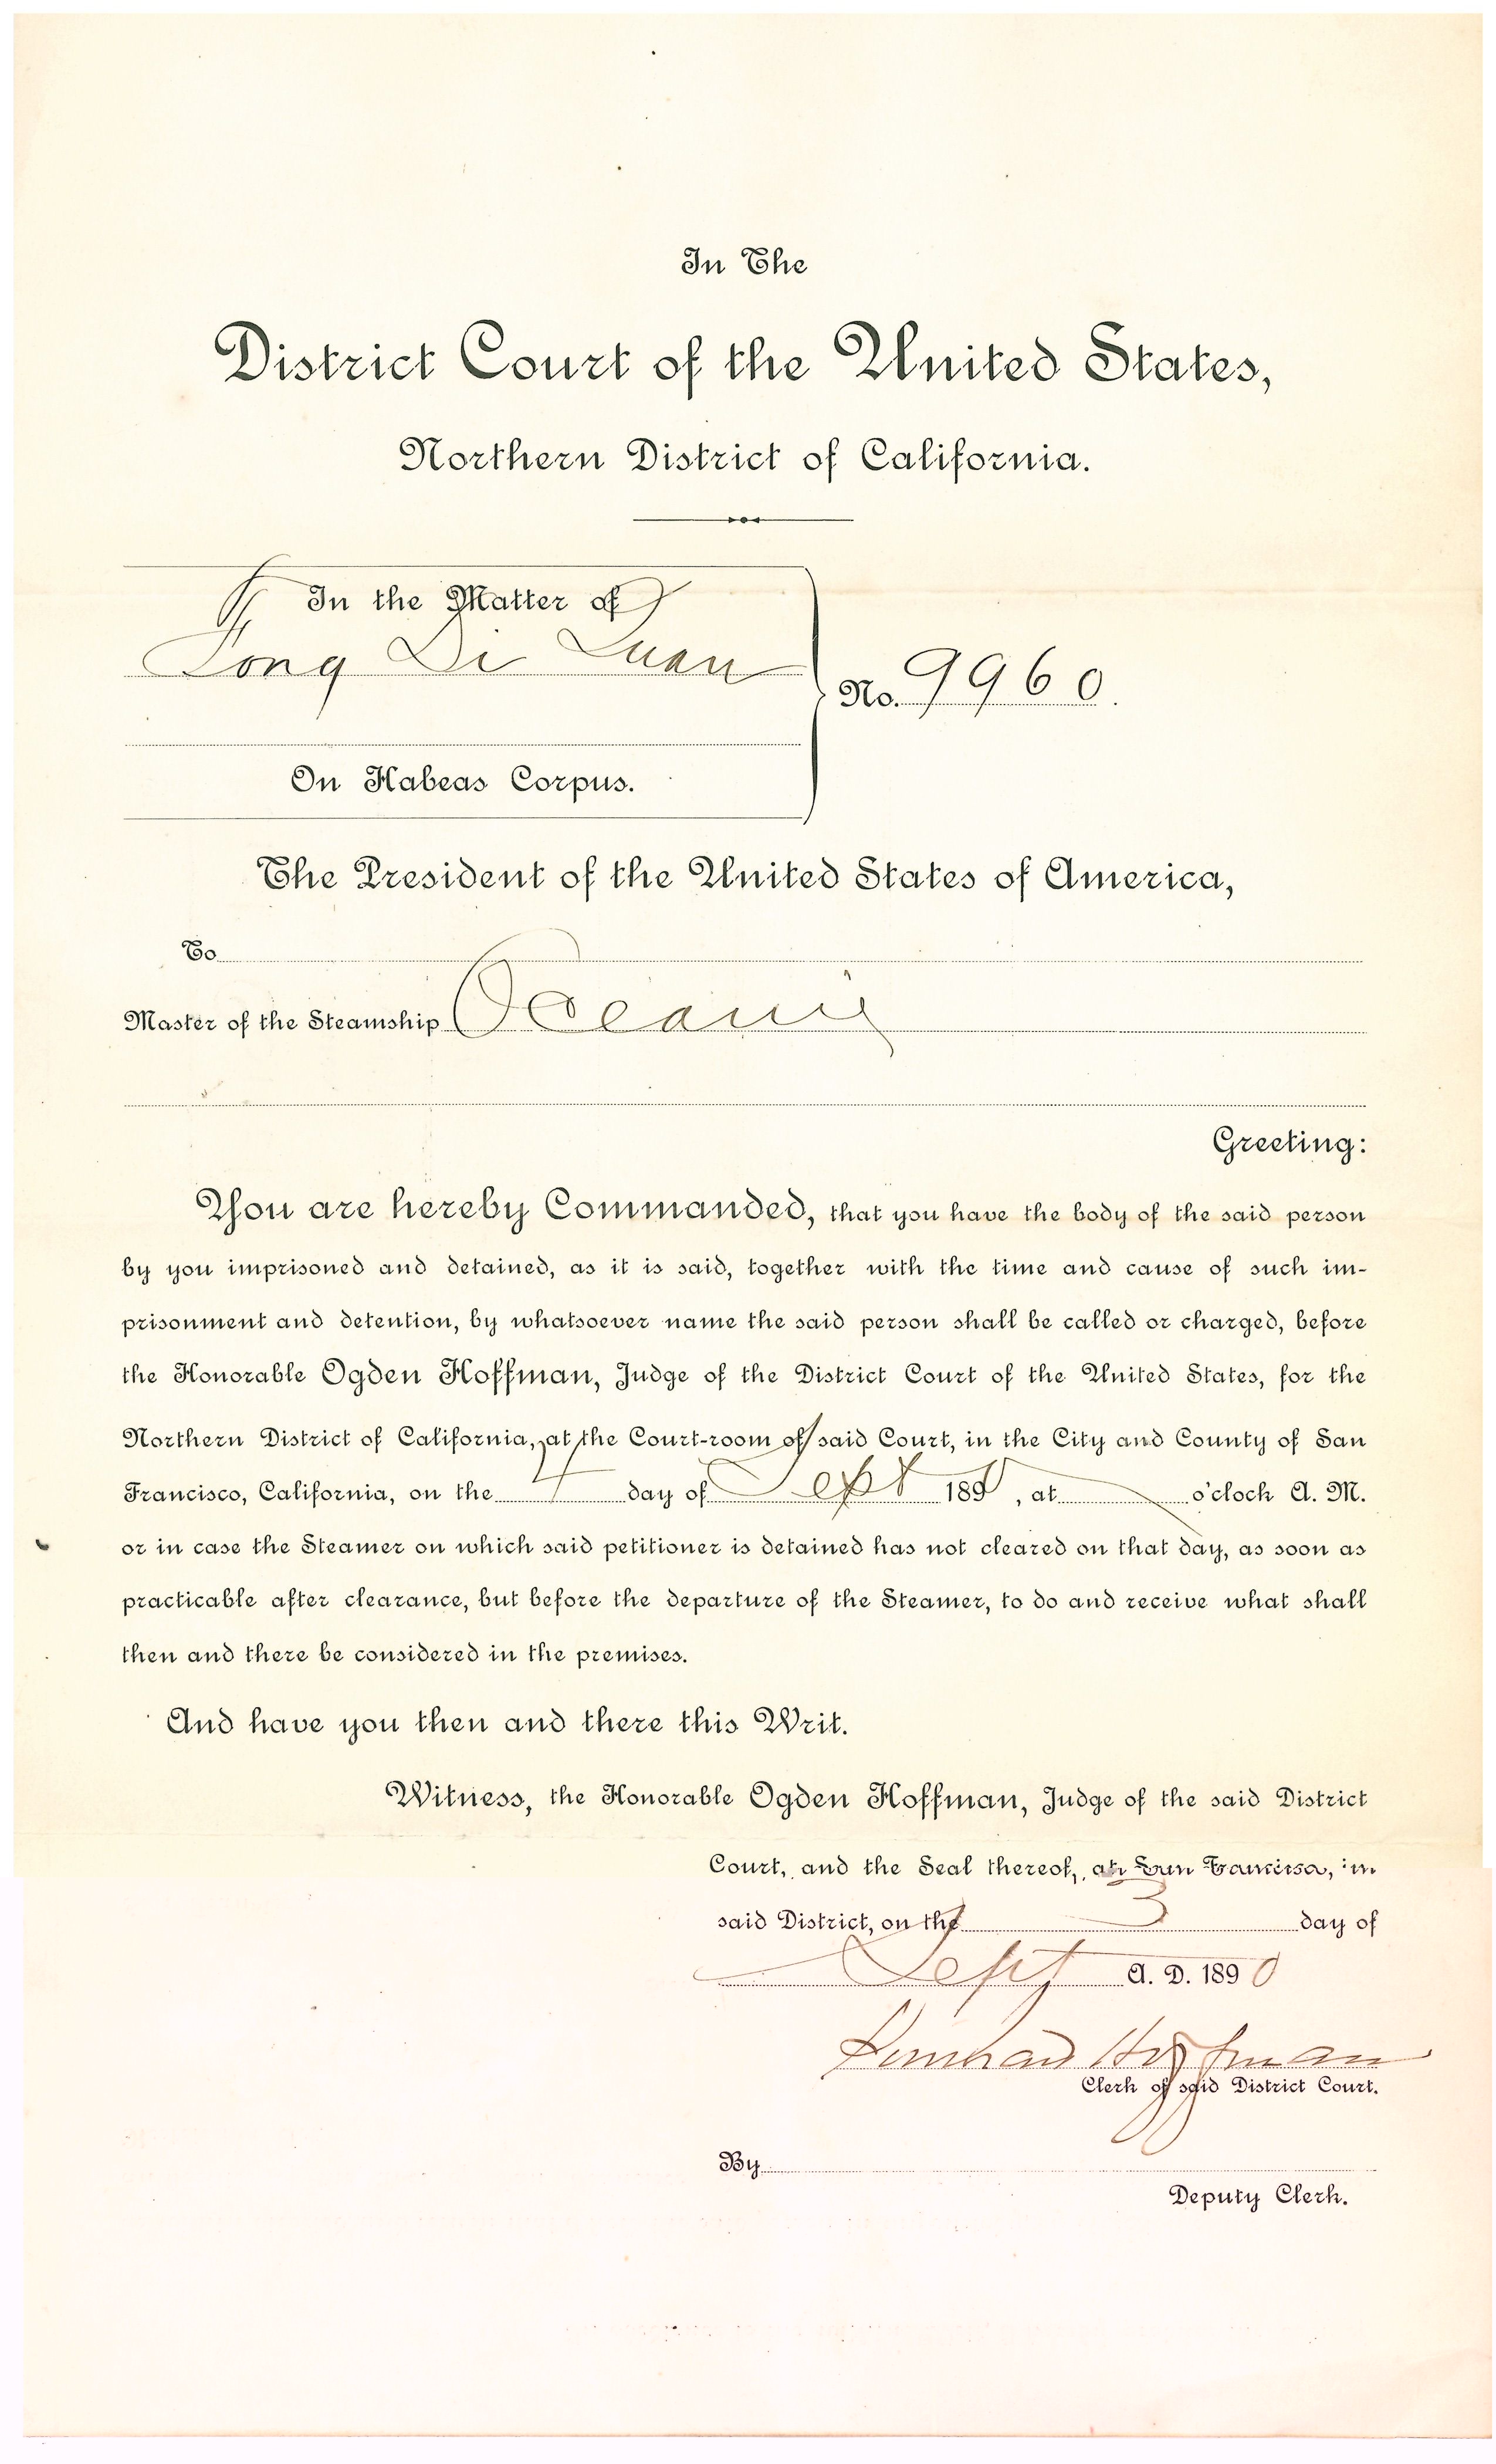 In The
District Court of the United States,
Northern District of California.
In the Matter of
On Habeas Corpus.
No. 9960.
The President of the United States of America,
To
Master of the Steamship Oceanic
Greeting:
You are hereby Commanded, that you have the body of the said person
by you imprisoned and detained, as it is said, together with the time and cause of such im-
prisonment and detention, by whatsoever name the said person shall be called or charged, before
the Honorable Ogden Hoffman, Judge of the District Court of the United States, for the
Northern District of California, at the Court-room of said Court, in the City and County of San
Francisco, California, on the 4 day of Sept 1890, at o'clock A. M.
or in case the Steamer on which said petitioner is detained has not cleared on that day, as soon as
practicable after clearance, but before the departure of the Steamer, to do and receive what shall
then and there be considered in the premises.
And have you then and there this Writ.
Witness, the Honorable Ogden Hoffman, Judge of the said District
Court, and the Seal thereof, at San Francisco, in
said District, on the 3 day of
Sept A. D. 1890
Hoffman
Clerk of said District Court.
By
Deputy Clerk.